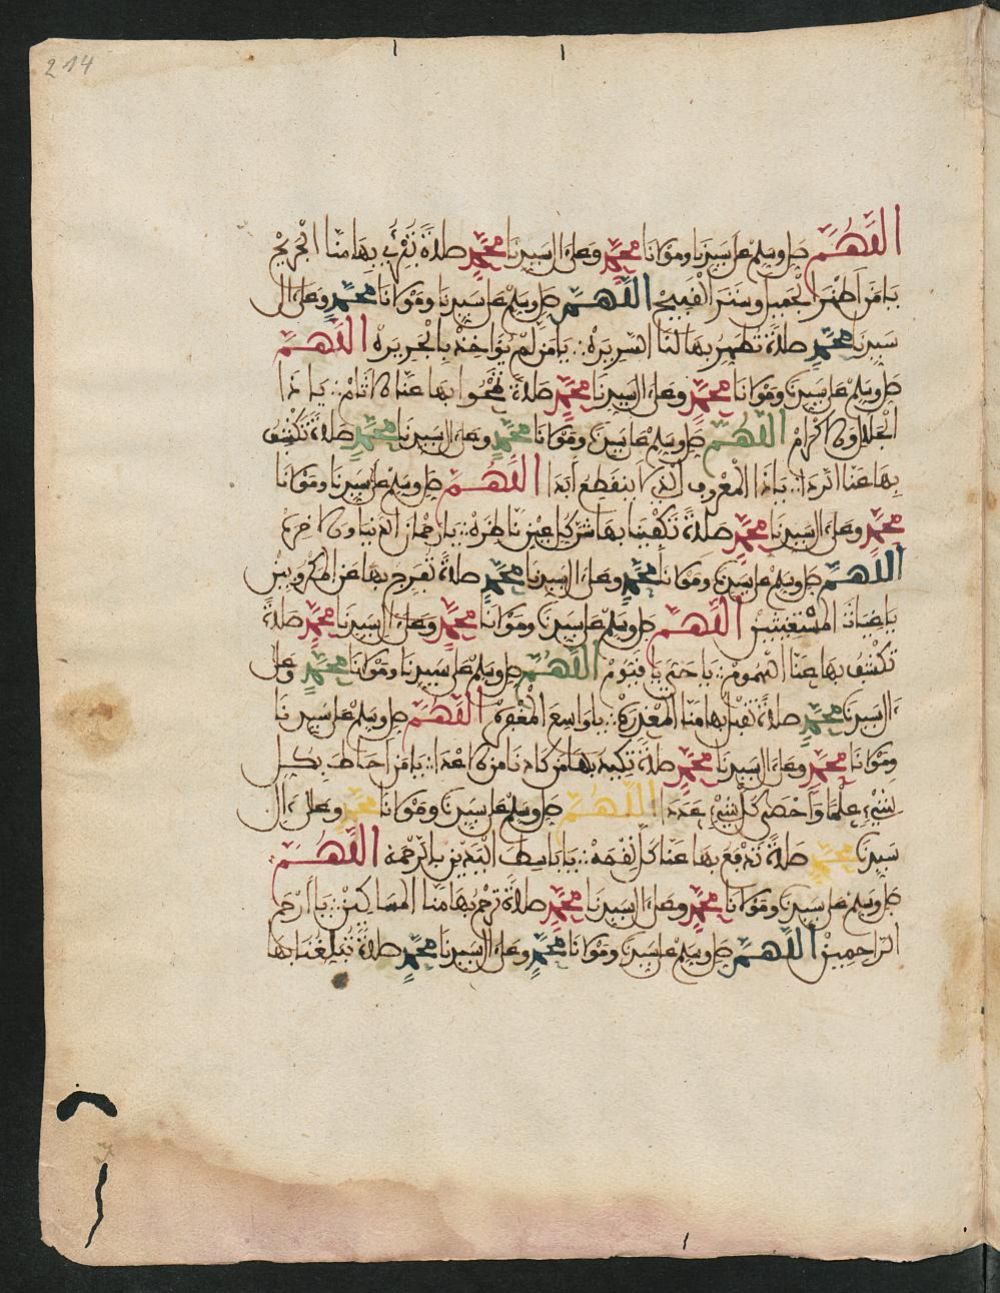 214
اللهم صل وسلم على سيدنا ومولانا محمد وعلى ءال سيدنا محمد صلاة تفرج بها منا الحريج
يا من اظهر الجميل وستر القبيح اللهم صل وسلم على سيدنا ومولانا محمد وعلى ءال
سيدنا محمد صلاة تطهر بها لنا السريره يا من لم يؤاخذ بالجريره اللهم
صل وسلم على سيدنا ومولانا محمد وعلى ءال سيدنا محمد صلاة تمحوا بها عنا الاثام يا ذا
الجلال والاكرام اللهم صل وسلم على سيدنا ومولانا محمد وعلى ءال سيدنا محمد صلاة تكشف
بها عنا الردا يا ذا المعروف الذي لا ينقطع ابدا اللهم صل وسلم على سيدنا ومولانا
محمد وعلى ءال سيدنا محمد صلاة تكفينا بها شر كل عين ناظرة يا رحمان الدنيا والاخرة
اللهم صل وسلم على سيدنا ومولانا محمد وعلى ءال سيدنا محمد صلاة تفرج بها عن المكروبين
يا غياث المستغيثين اللهم صل وسلم على سيدنا ومولانا محمد وعلى ءال سيدنا محمد صلاة
تكشف بها عنا الهموم يا حي يا قيوم اللهم صل وسلم على سيدنا ومولانا محمد وعلى
ءال سيدنا محمد صلاة تقبل بها منا المعذرة يا واسع المغفرة اللهم صل وسلم على سيدنا
ومولانا محمد وعلى ءال سيدنا محمد صلاة تكيد بها من كادنا من الاعدا يا من احاط بكل
شيء علما واحصى كل شيء عددا اللهم صل وسلم على سيدنا ومولانا محمد وعلى ءال
سيدنا محمد صلاة تدفع بها عنا كل نقمة يا باسط اليدين بالرحمة اللهم
صل وسلم على سيدنا ومولانا محمد وعلى ءال سيدنا محمد صلاة ترحم بها منا المساكين يا ارحم
الراحمين اللهم صل وسلم على سيدنا ومولانا محمد وعلى ءال سيدنا محمد صلاة تبلغنا بها